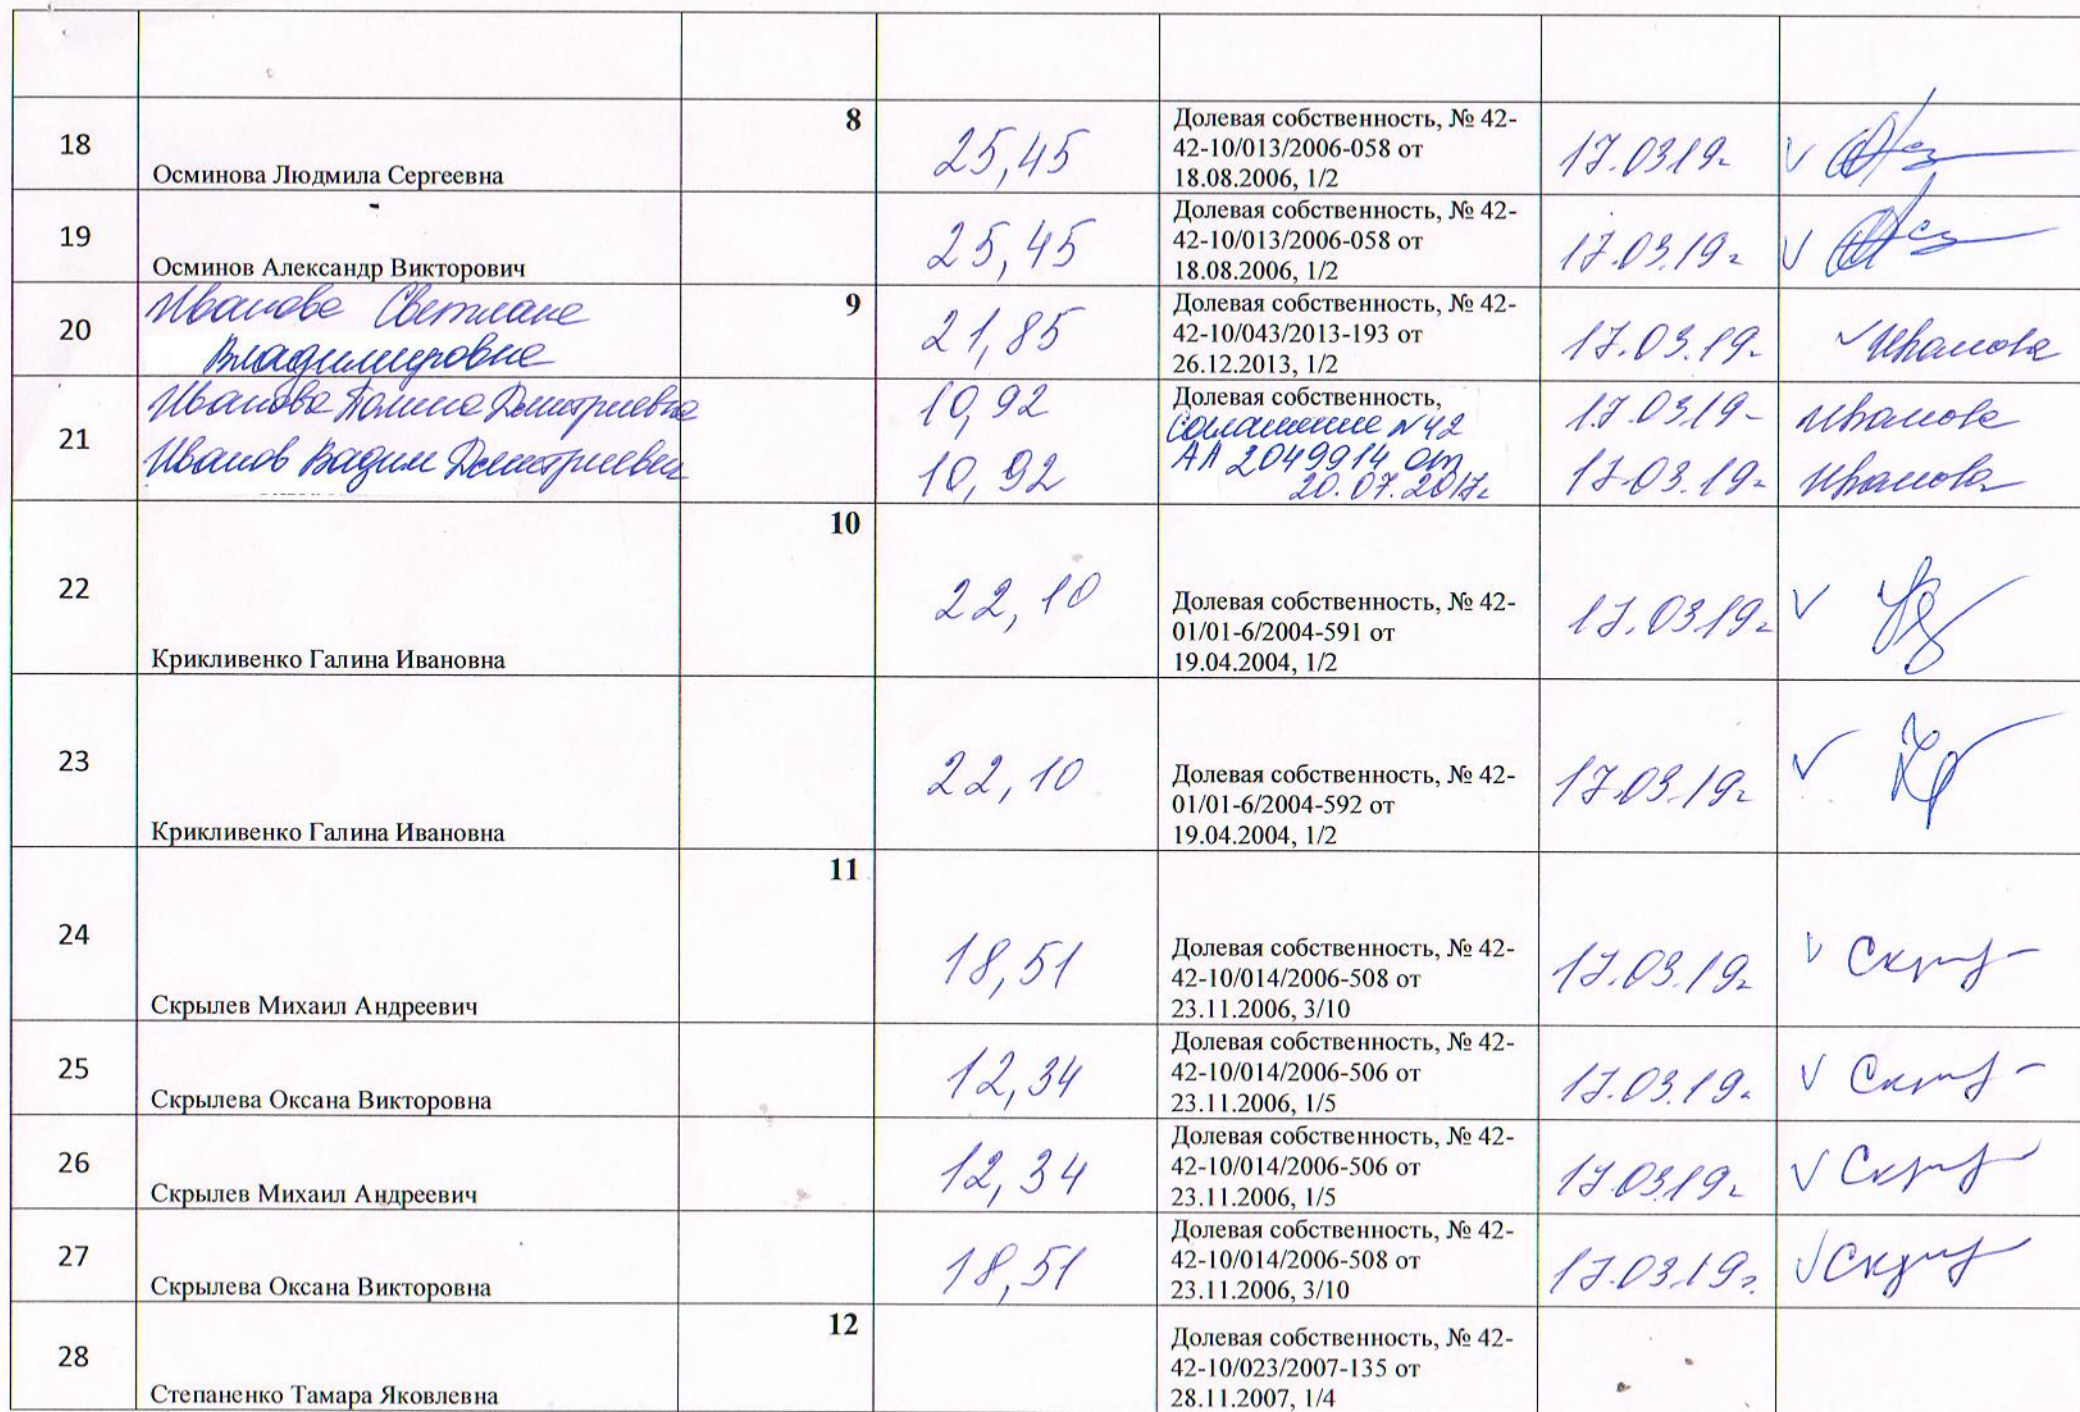 18
Осминова Людмила Сергеевна
8
25,45
Долевая собственность, № 42-
42-10/013/2006-058 от
18.08.2006, 1/2
17.03.19г
19
Осминов Александр Викторович
25,45
Долевая собственность, № 42-
42-10/013/2006-058 от
18.08.2006, 1/2
17.03.19г
20
Иванова Светлана
Владимировна
9
21,85
Долевая собственность, № 42-
42-10/043/2013-193 от
26.12.2013, 1/2
17.03.19г
Иванова
21
Иванова Полина Дмитриевна
Иванов Вадим Дмитриевич
10,92
10,92
Долевая собственность,
Соглашение №42
АА 2049914 от
20.07.2017г
17.03.19г
17.03.19г
Иванова
Иванова
22
Крикливенко Галина Ивановна
10
22,10
Долевая собственность, № 42-
01/01-6/2004-591 от
19.04.2004, 1/2
17.03.19г
23
Крикливенко Галина Ивановна
22,10
Долевая собственность, № 42-
01/01-6/2004-592 от
19.04.2004, 1/2
17.03.19г
24
Скрылев Михаил Андреевич
11
18,51
Долевая собственность, № 42-
42-10/014/2006-508 от
23.11.2006, 3/10
17.03.19г
25
Скрылева Оксана Викторовна
12,34
Долевая собственность, № 42-
42-10/014/2006-506 от
23.11.2006, 1/5
17.03.19г
26
Скрылев Михаил Андреевич
12,34
Долевая собственность, № 42-
42-10/014/2006-506 от
23.11.2006, 1/5
17.03.19г
27
Скрылева Оксана Викторовна
18,51
Долевая собственность, № 42-
42-10/014/2006-508 от
23.11.2006, 3/10
17.03.19г
28
Степаненко Тамара Яковлевна
12
Долевая собственность, № 42-
42-10/023/2007-135 от
28.11.2007, 1/4